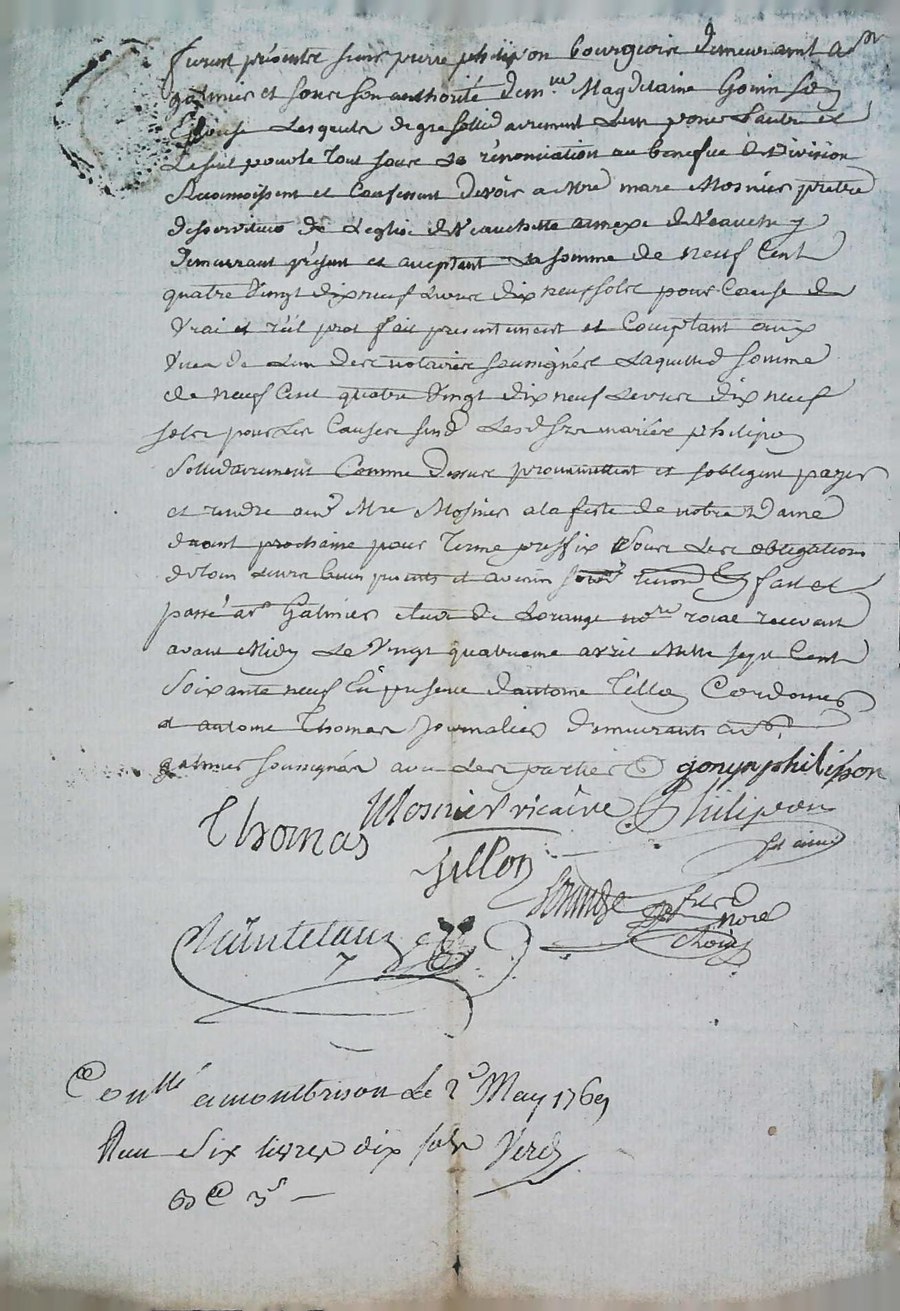 furent présents sieur pierre philipon bourgeois demeurant a st
galmier et sous son authorité dem.lle Magdelaine Gonin son
Epouse Lesquels de gré sollidairement L'un pour L'autre et
Le seul pour le Tout sous La rénonciation au benefice de Division
Reconnoissent et Confessent Devoir a Mre marc Mosnier prêtre
desserviteur de L'eglise de Veauchette annexe de Veauche y
demeurant présent et acceptant La somme de neuf Cent
quatre Vingt dix neuf Livres dix neuf sols pour Cause de
Vrai et réél prêt fait presentement et Comptant aux
Vues de L'un des notaires soussignés Laquelle somme
de neuf Cent quatre Vingt dix neuf Livres dix neuf
sols pour Les Causes susd Lesd srs mariés philipon
sollidairement Comme Dessus promettent et s'obligent payer
et rendre aud Mre Mosnier a la feste de notre Dame
d'aout prochaine pour Terme preffix sous Les obligations
de tous Leurs biens présents et avenir fait et
passé a st Galmier etude de Lorange nore roial recevant
avant Midy Le Vingt quatrieme avril Mille sept Cent
soixante neuf En présence d'antoine Tillon Cordonnier
et antoine Thomas journalier demeurants a st
galmier soussignés avec Les parties gonyn philipon
Thomas Mosnier vicaire Philipon
Tillon
Lorange
nore
roial
Conllé a montbrison Le 2e May 1769
Reçu six livres dix sols